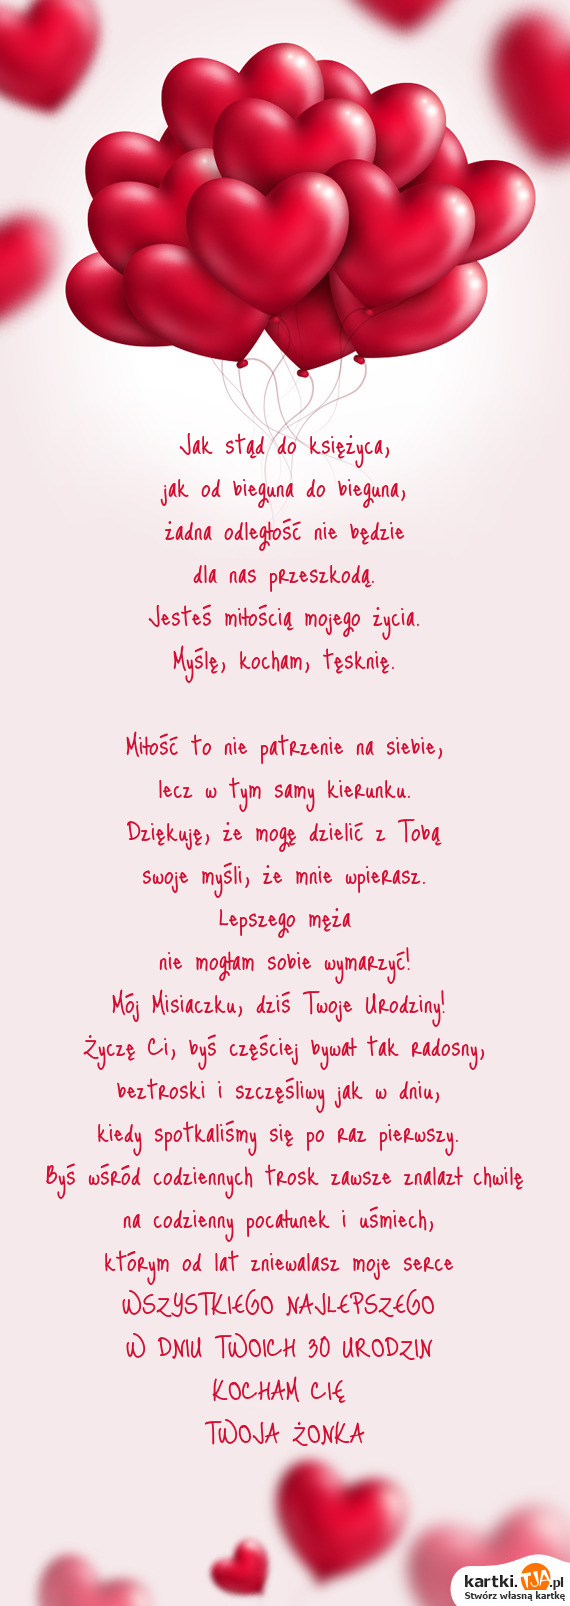 Jak stąd do księżyca,
jak od bieguna do bieguna,
żadna odległość nie będzie
dla nas przeszkodą.
Jesteś miłością mojego życia.
Myślę, kocham, tęsknię.
Miłość to nie patrzenie na siebie,
lecz w tym samy kierunku.
Dziękuję, że mogę dzielić z Tobą
swoje myśli, że mnie wpierasz.
Lepszego męża
nie mogłam sobie wymarzyć!
Mój Misiaczku, dziś Twoje Urodziny!
Życzę Ci, byś częściej bywał tak radosny,
beztroski i szczęśliwy jak w dniu,
kiedy spotkaliśmy się po raz pierwszy.
Byś wśród codziennych trosk zawsze znalazł chwilę
na codzienny pocałunek i uśmiech,
którym od lat zniewalasz moje serce
WSZYSTKIEGO NAJLEPSZEGO
W DNIU TWOICH 30 URODZIN
KOCHAM CIĘ
TWOJA ŻONKA
kartki.TJA.pl
Stwórz własną kartkę